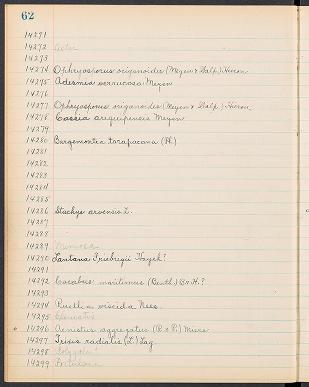 62
14271
14272 Aster
14273
14274 Ophryosporus origanoides (Meyen & Walp.) Hieron.
14275 Adesmia verrucosa Meyen
14276
14277 Ophryosporus origanoides (Meyen & Walp.) Hieron.
14278 Cassia arequipensis Meyen
14279
14280 Burgemontia tarapacana (Ph.)
14281
14282
14283
14284
14285
14286 Stachys arvensis L.
14287
14288
14289 Mimosa
14290 Lantana Hayek?
14291
14292 maritimus (Benth.) B. & H.?
14293
14294 Ruellia viscida Nees.
14295 Clematis
14296 Acnistus aggregatus (R. & P.) Miers
14297 Trixis radialis (L.) Lag.
14298 Polygala
14299